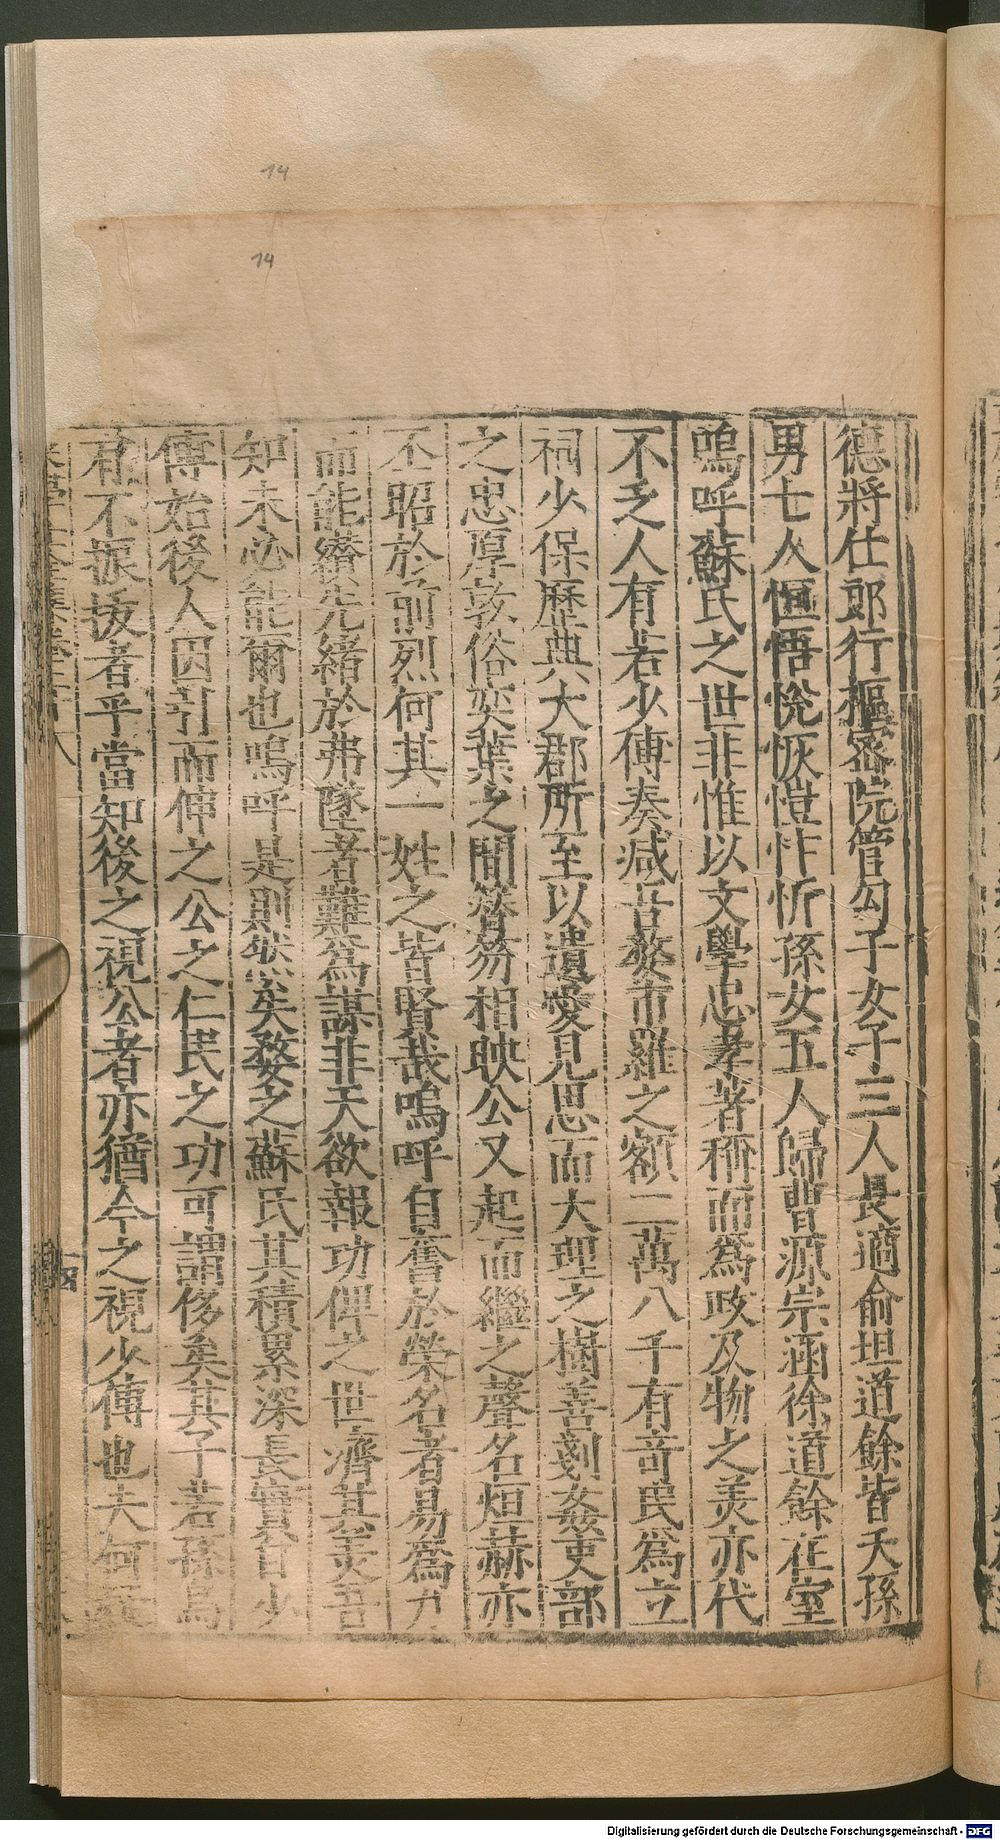 14
14
德將仕郎行樞密院管勾子女子三人長適俞坦道餘皆夭孫
男七人恒悟恱恢愷忭忻孫女五人歸曹源宗涵徐道餘在室
嗚呼蘇氏之世非惟以文學忠孝著稱而為政及物之美亦代
不乏人有若少傅奏减吾婺市羅之額二萬八千有竒民為立
祠少保歷典大郡所至以遺愛見思而大理之樹善刻姦吏部
之忠厚敦俗奕葉之間簪笏相映公又起而繼之聲名烜赫亦
丕昭於前烈何其一姓之皆賢哉嗚呼自奮於榮名者易為力
而能纘先緒於弗墜者難為謀非天欲報功俾之世濟其美吾
知未必能爾也嗚呼是則然矣婺之蘇氏其積累深長實自少
傅始後人因引而伸之公之仁民之功可謂侈矣其子若孫烏
有不振拔者乎當知後之視公者亦猶今之視少傅也夫何
Digitalisierung gefördert durch die Deutsche Forschungsgemeinschaft - DFG